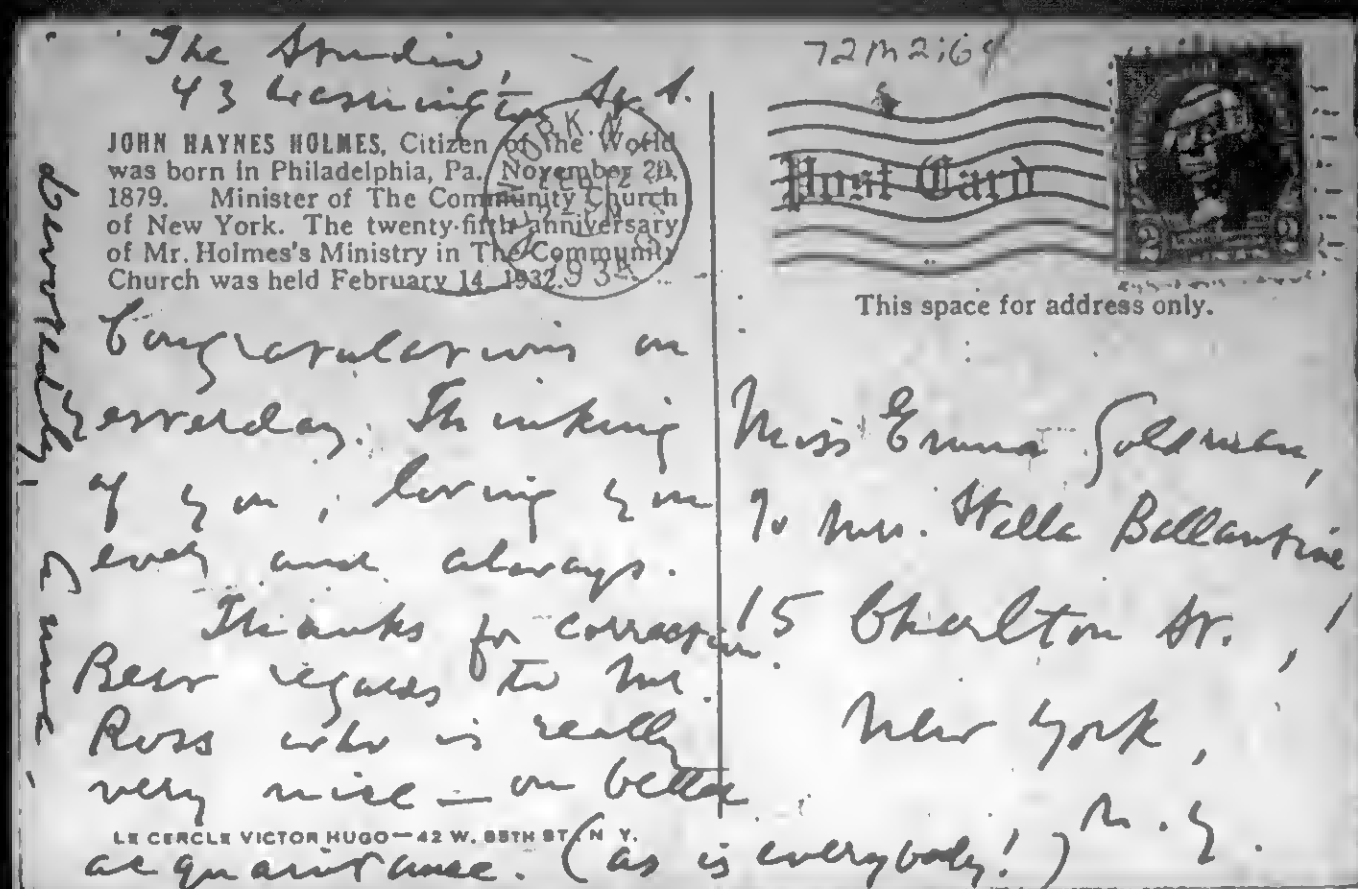 The Studio,
43 Washington Sq. S.
JOHN HAYNES HOLMES, Citizen of the World
was born in Philadelphia, Pa., November 29,
1879. Minister of The Community Church
of New York. The twenty-fifth anniversary
of Mr. Holmes's Ministry in The Community
Church was held February 14, 1932.
Congratulations on
yesterday. Thinking
of you, loving you
ever and always.
Thanks for correction.
Best regards to Mr.
Ross who is really
very nice — on better
LE CERCLE VICTOR HUGO—42 W. 85TH ST. N. Y.
acquaintance. (as is everybody!)
devotedly,
72M2:64
Post Card
This space for address only.
Miss Emma Goldman,
c/o Mrs. Stella Ballantine
15 Charlton St.,
New York,
N. Y.
2 2